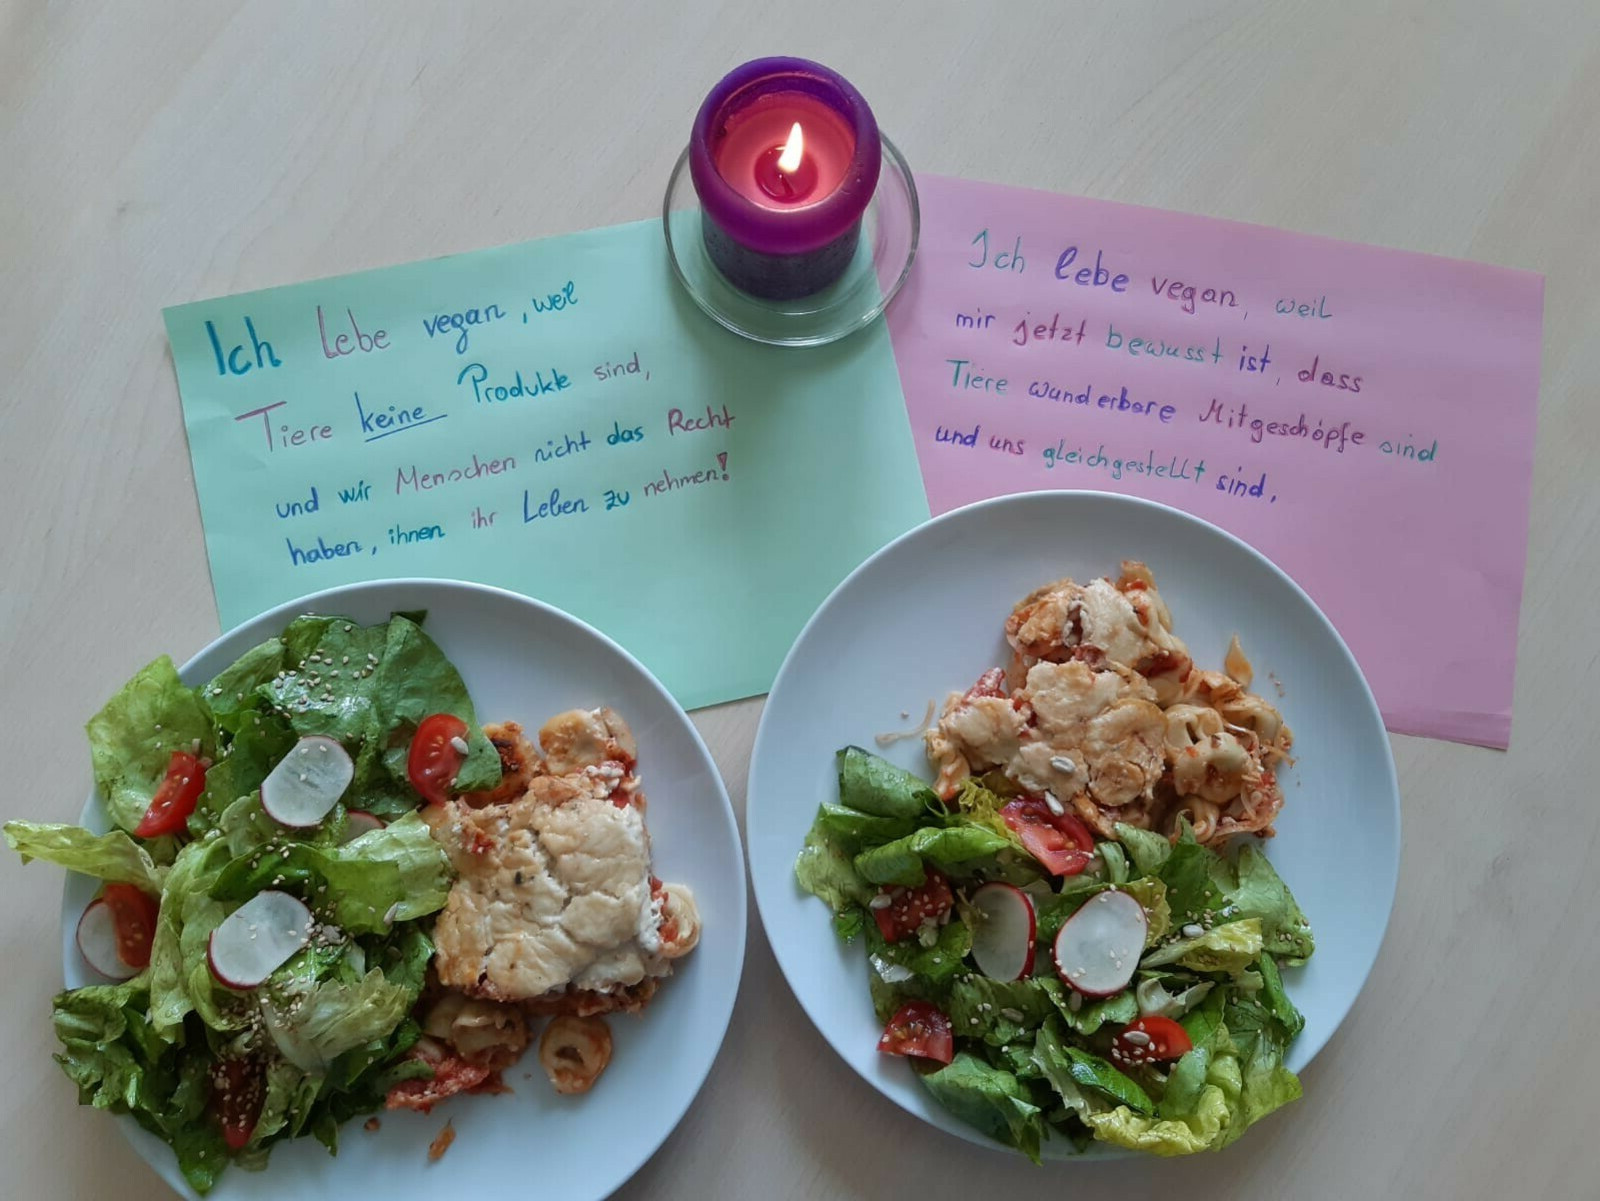 Ich lebe vegan, weil
Tiere keine Produkte sind,
und wir Menschen nicht das Recht
haben, ihnen ihr Leben zu nehmen!
Ich lebe vegan, weil
mir jetzt bewusst ist, dass
Tiere wunderbare Mitgeschöpfe sind
und uns gleichgestellt sind.